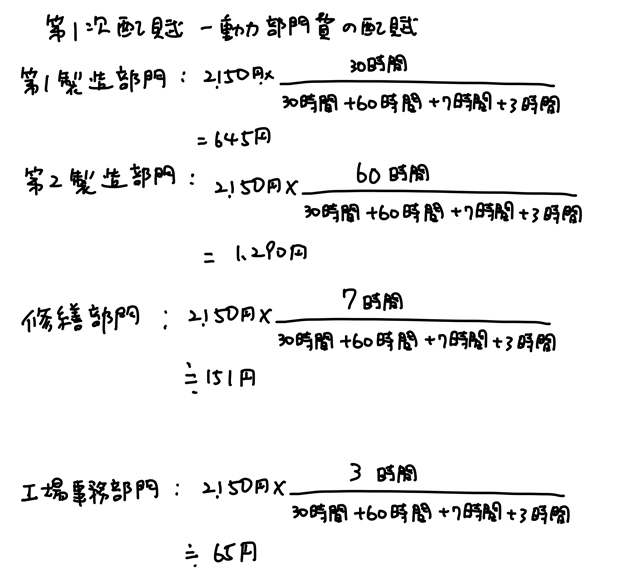 第1次配賦 －動力部門費の配賦
第1製造部門 : 2,150円× 30時間 / 30時間+60時間+7時間+3時間
= 645円
第2製造部門 : 2,150円× 60時間 / 30時間+60時間+7時間+3時間
= 1,290円
修繕部門 : 2,150円× 7時間 / 30時間+60時間+7時間+3時間
≒ 151円
工場事務部門 : 2,150円× 3時間 / 30時間+60時間+7時間+3時間
≒ 65円